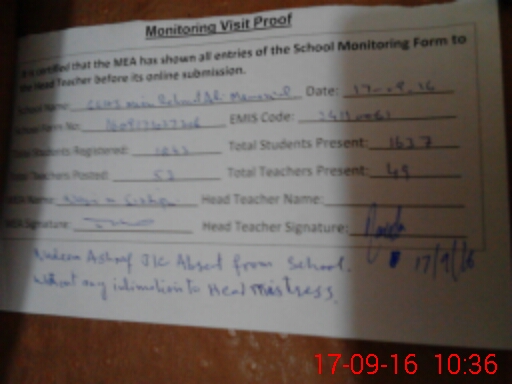 Monitoring Visit Proof
It is certified that the MEA has shown all entries of the School Monitoring Form to
the Head Teacher before its online submission.
School Name: Date: 17-09-16
School Form No: EMIS Code:
Total Students Registered: Total Students Present: 1627
Total Teachers Posted: 52 Total Teachers Present: 49
MEA Name: Head Teacher Name:
MEA Signature: Head Teacher Signature:
17/9/16
Nadeem Ashraf J/C Absent from School.
without any intimation to Head mistress.
17-09-16 10:36